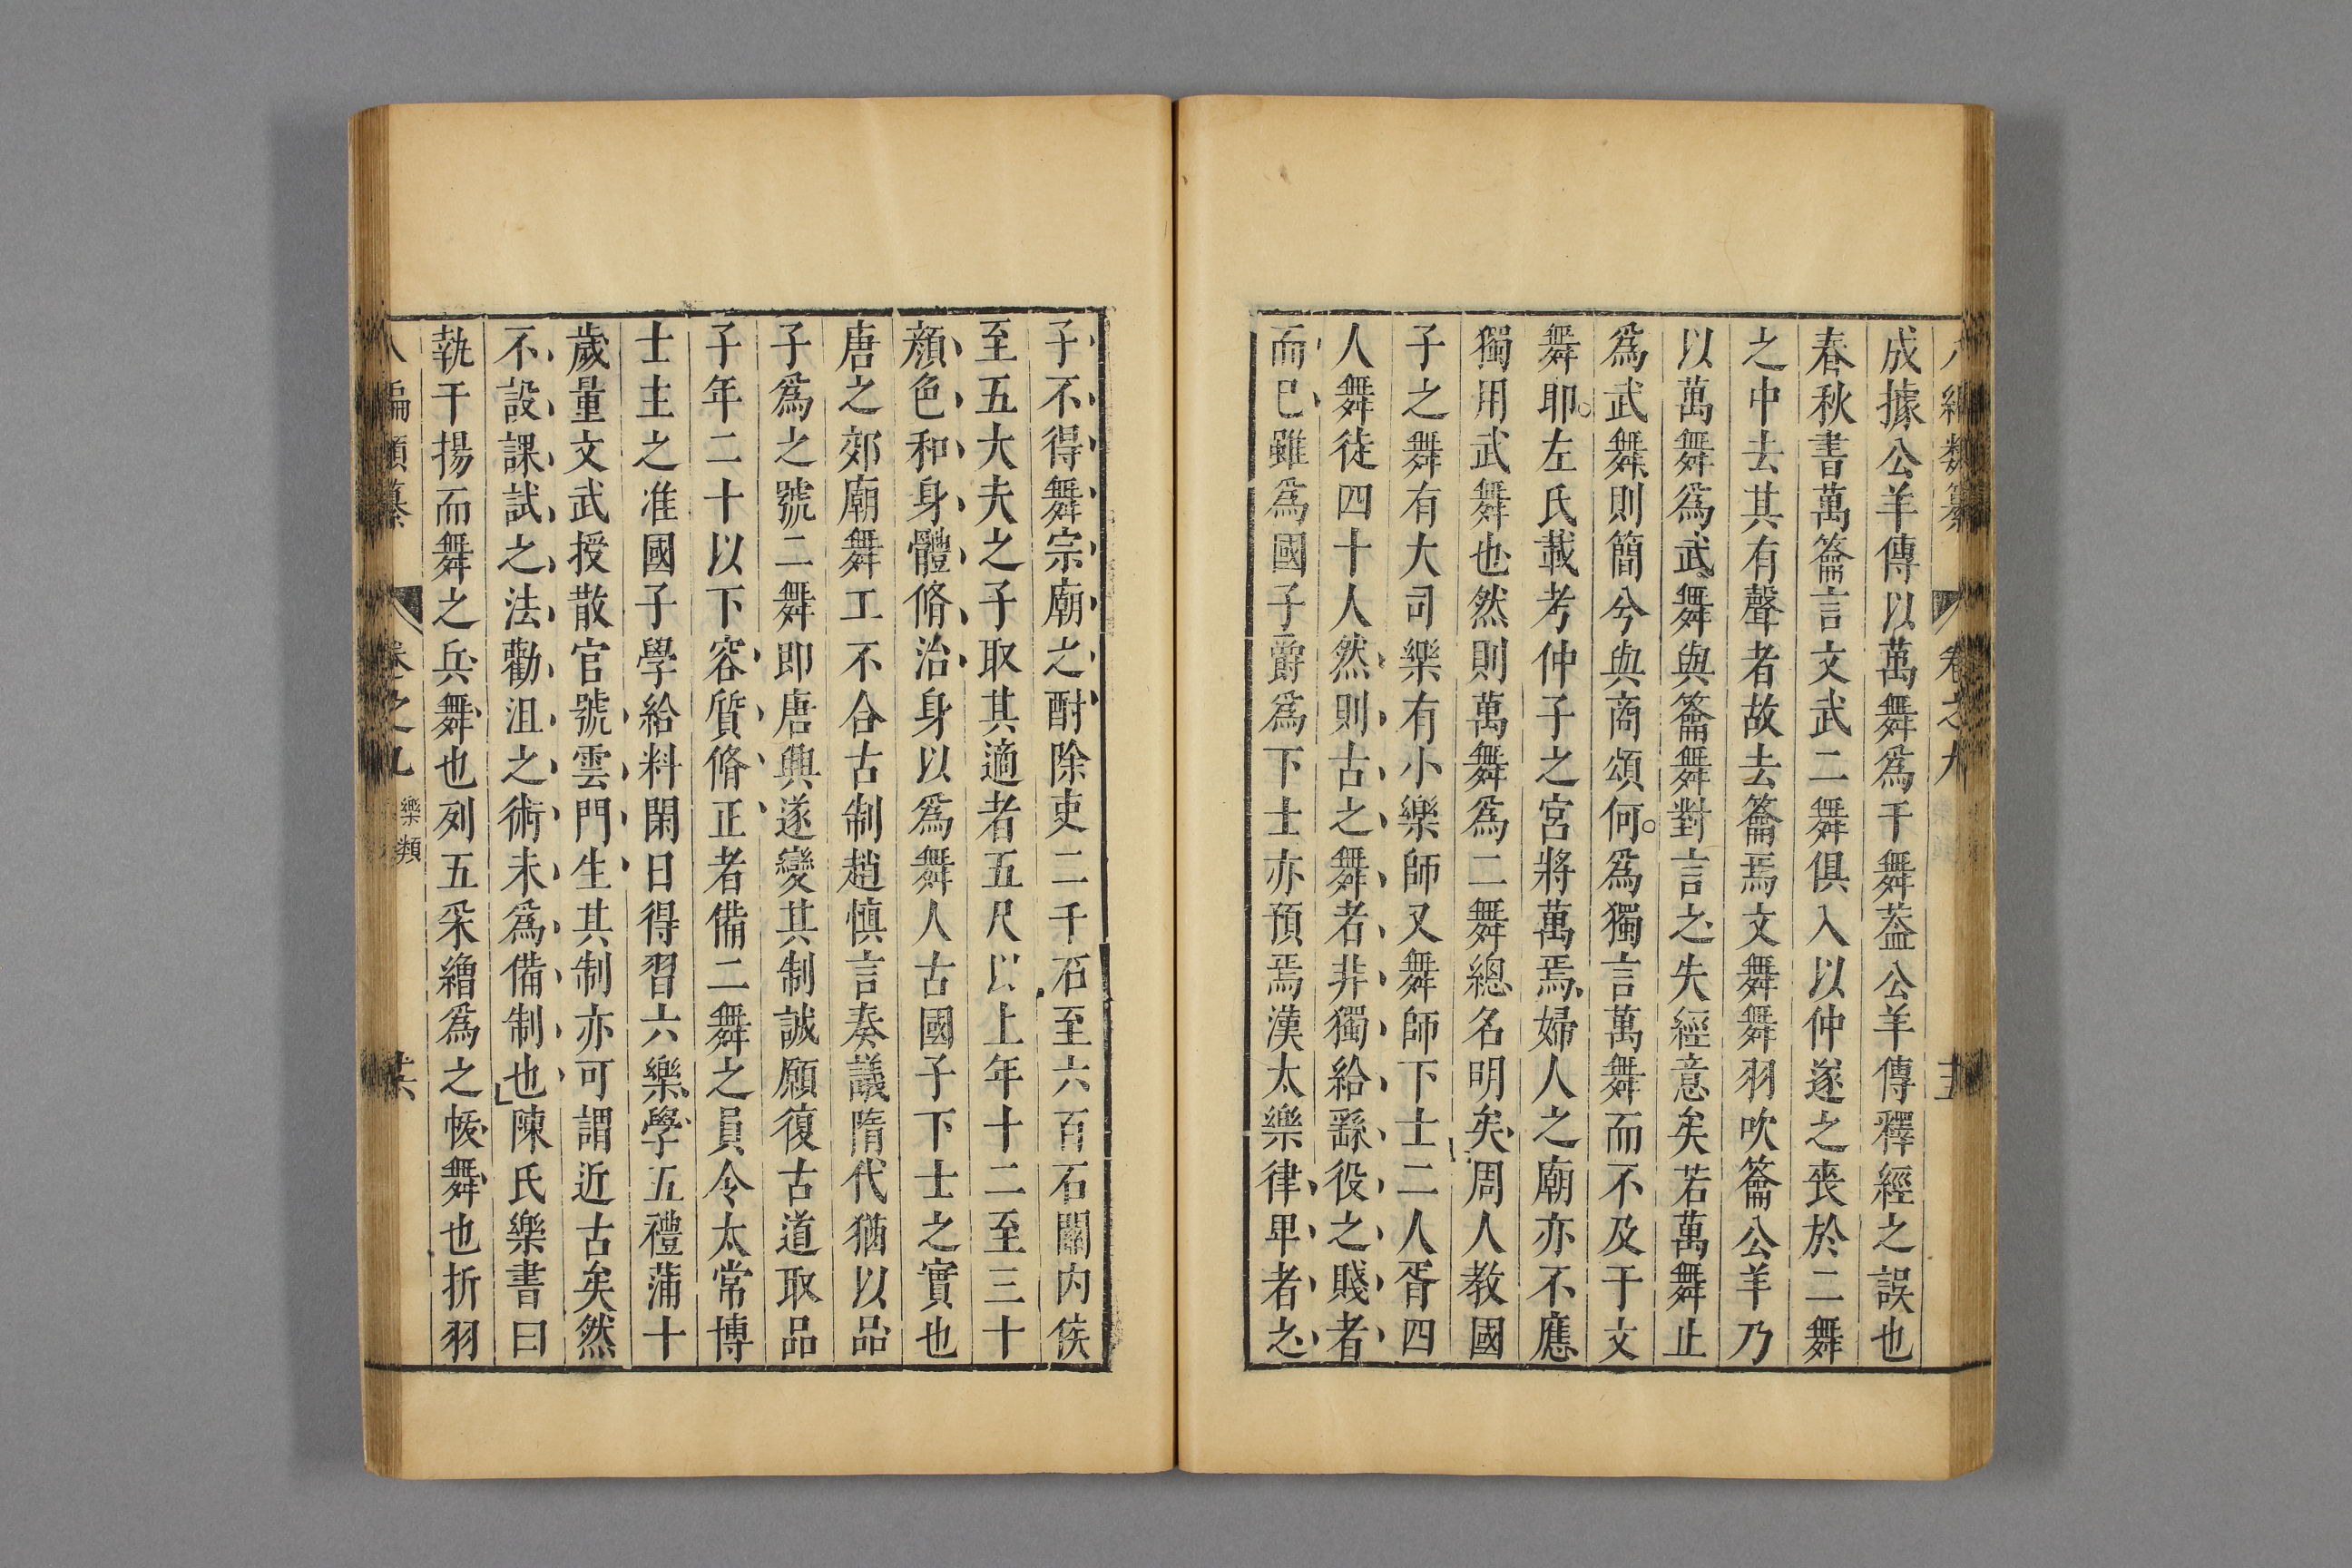 成據公羊傳以萬舞爲干舞葢公羊傳釋經之誤也
春秋書萬籥言文武二舞俱入以仲遂之喪於二舞
之中去其有聲者故去籥焉文舞舞羽吹籥公羊乃
以萬舞爲武舞與籥舞對言之失經意矣若萬舞止
爲武舞則簡兮與商頌何爲獨言萬舞而不及于文
舞耶左氏載考仲子之宮將萬焉婦人之廟亦不應
獨用武舞也然則萬舞爲二舞總名明矣周人教國
子之舞有大司樂有小樂師又舞師下士二人胥四
人舞徒四十人然則古之舞者非獨給繇役之賤者
而已雖爲國子爵爲下士亦預焉漢太樂律卑者之
子不得舞宗廟之酎除吏二千石至六百石關内侯
至五大夫之子取其適者五尺以上年十二至三十
顔色和身體脩治身以爲舞人古國子下士之實也
唐之郊廟舞工不合古制趙慎言奏議隋代猶以品
子爲之號二舞即唐興遂變其制誠願復古道取品
子年二十以下容質脩正者備二舞之員令太常博
士主之准國子學給料閑日得習六樂學五禮蒲十
歲量文武授散官號雲門生其制亦可謂近古矣然
不設課試之法勸沮之術未爲備制也陳氏樂書曰
執干揚而舞之兵舞也列五采繒爲之帗舞也折羽
八編類纂 卷之九 樂類